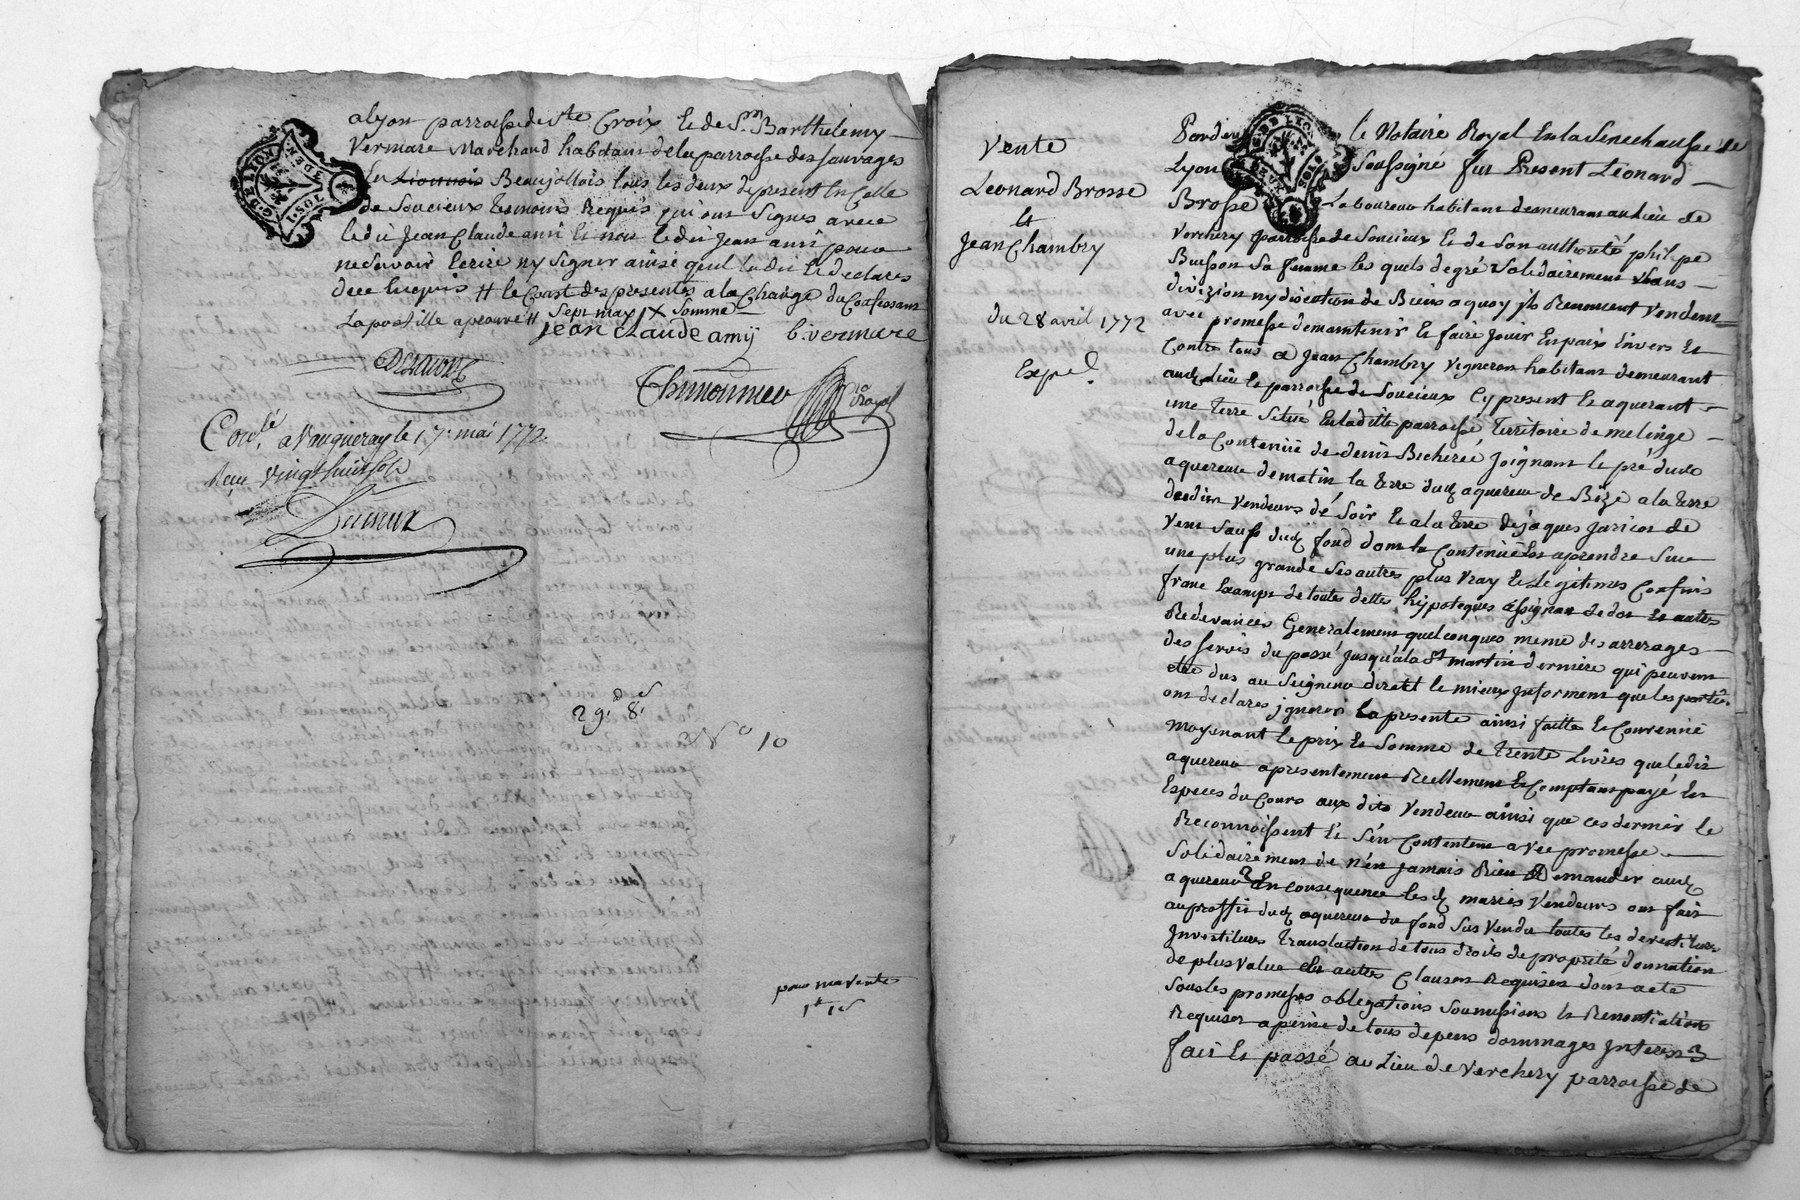 alyon parroisse de Ste Croix et de Sr. Barthelemy
Vermare Marchand habitant de la parroisse des Sauvages
en Lionnois Beaujollois tous les deux de present en Celle
de Soucieux temoins Requis qui ont Signes avec
le dit Jean Claude ami et non le dit Jean ami pour
ne Scavoir Ecrire ny Signer ainsi quil la dit et declares
dece Enquis # le Coast des presentes a la Charge du Confessant
Sept may X Somme
La postille aprouvé # Jean Claude amij b. vermare
Thimonnier
Con.lé a Vaugneray le 17e mai 1772
Reçu vingt huit sols
29. 8.
N.o 10
pour ma vente
1# 1s
Vente
Leonard Brosse
et
Jean Chambry
du 28 avril 1772
Exped.
Pardev le Notaire Royal En la Senechaussée de
Lyon Soussigné fut Present Leonard
Brosse Laboureur habitant demeurant au Lieu de
Verchery parroisse de Soucieux et de Son authorité philipe
Buisson Sa femme les quels de gré Solidairement Sans
divizion ny discution de Biens a quoy ils Renoncent Vendent
avec promesse de maintenir et faire jouir En paix Envers et
Contre tous a Jean Chambry Vigneron habitant demeurant
aud. Lieu et parroisse de Soucieux Cy present et aquerant
une terre Situé En la ditte parroisse territoire de melinge
de la Contenüe de demi Bicherée Joignant le pré dud.
aquereur de matin la terre dud. aquereur de Bize a la terre
desdits Vendeurs de Soir et a la terre de Jaques Jaricot de
Vent Sauf dud. fond dont la Contenüe Est a prendre Sur
une plus grande Ses autres plus Vray et Legitimes Confins
franc Exampt de toutes dettes, hypoteques assignat de dot et autres
Redevances Generalement quelconques meme des arrerages
des Servis du passé Jusqu'a la St martin derniere qui peuvent
etre dus au Seigneur direct le mieux Informent que les parties
ont declares ignorer La presente ainsi faitte et Convenüe
moyenant le prix et Somme de trente Livres que le dit
aquereur a presentement Reellement et Comptant payé En
Especes du Cours aux dits Vendeur ainsi que ces dernier le
Reconnoissent et S'en Contentent avec promesse
Solidairement de n'en Jamais Rien Demander aud.
aquereur En Consequence les d. mariés Vendeurs ont fait
au proffit dud. aquereur du fond Sus Vendu toutes les devestitures
Investitures translaction de tous droits de proprieté donnation
de plus value et autres Clauses Requises dont acte
Sous les promesses oblegations Soumissions et Renontiations
Requises a peine de tous depens dommages Interest
fait et passé au Lieu de Verchery parroisse de